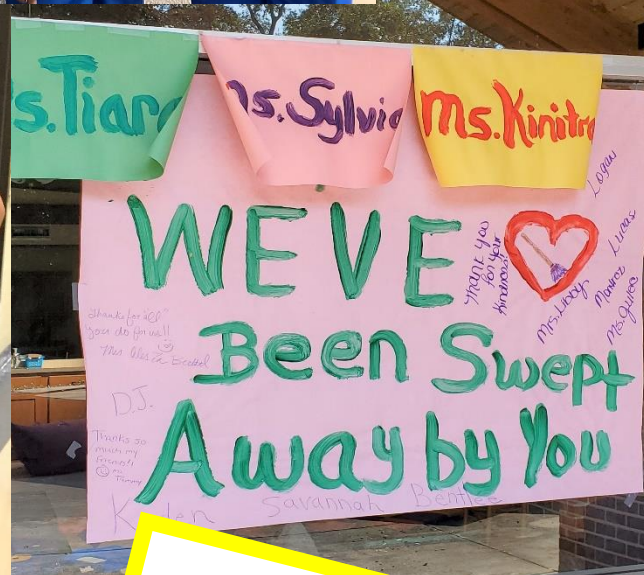 s. Tiara
s. Sylvia
Ms. Kinitra
WEVE
Been Swept
Away by You
Thank you
for your
kindness!
Logan
Lucas
Mrs. Libby
Thanks for all
you do for us!!
D.J.
Thanks so
much my
friend!
Tammy
Savannah
Bentlee